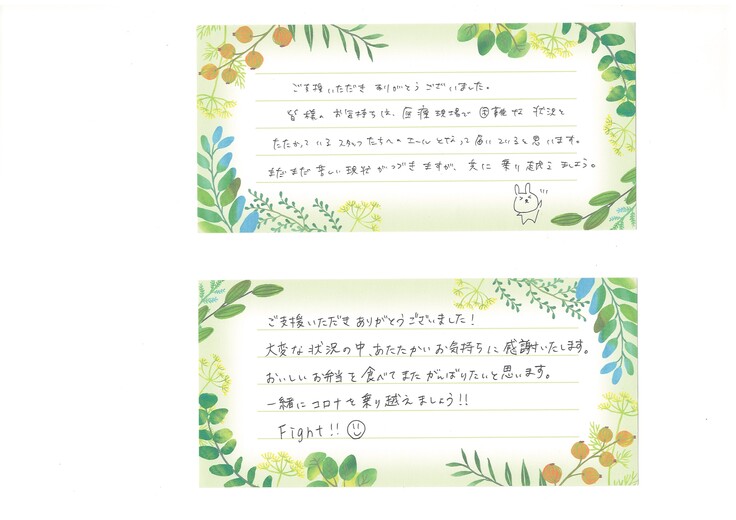 ご支援いただき ありがとうございました。
皆様の お気持ちは、医療現場で 困難な 状況と
たたかっている スタッフたちへの エールとなって 届いていると 思います。
まだまだ 苦しい 現状が つづきますが、共に 乗り越え ましょう。
ご支援いただき ありがとうございました!
大変な状況の中、あたたかいお気持ちに感謝いたします。
おいしいお弁当を食べてまたがんばりたいと思います。
一緒にコロナを乗り越えましょう!!
Fight!!